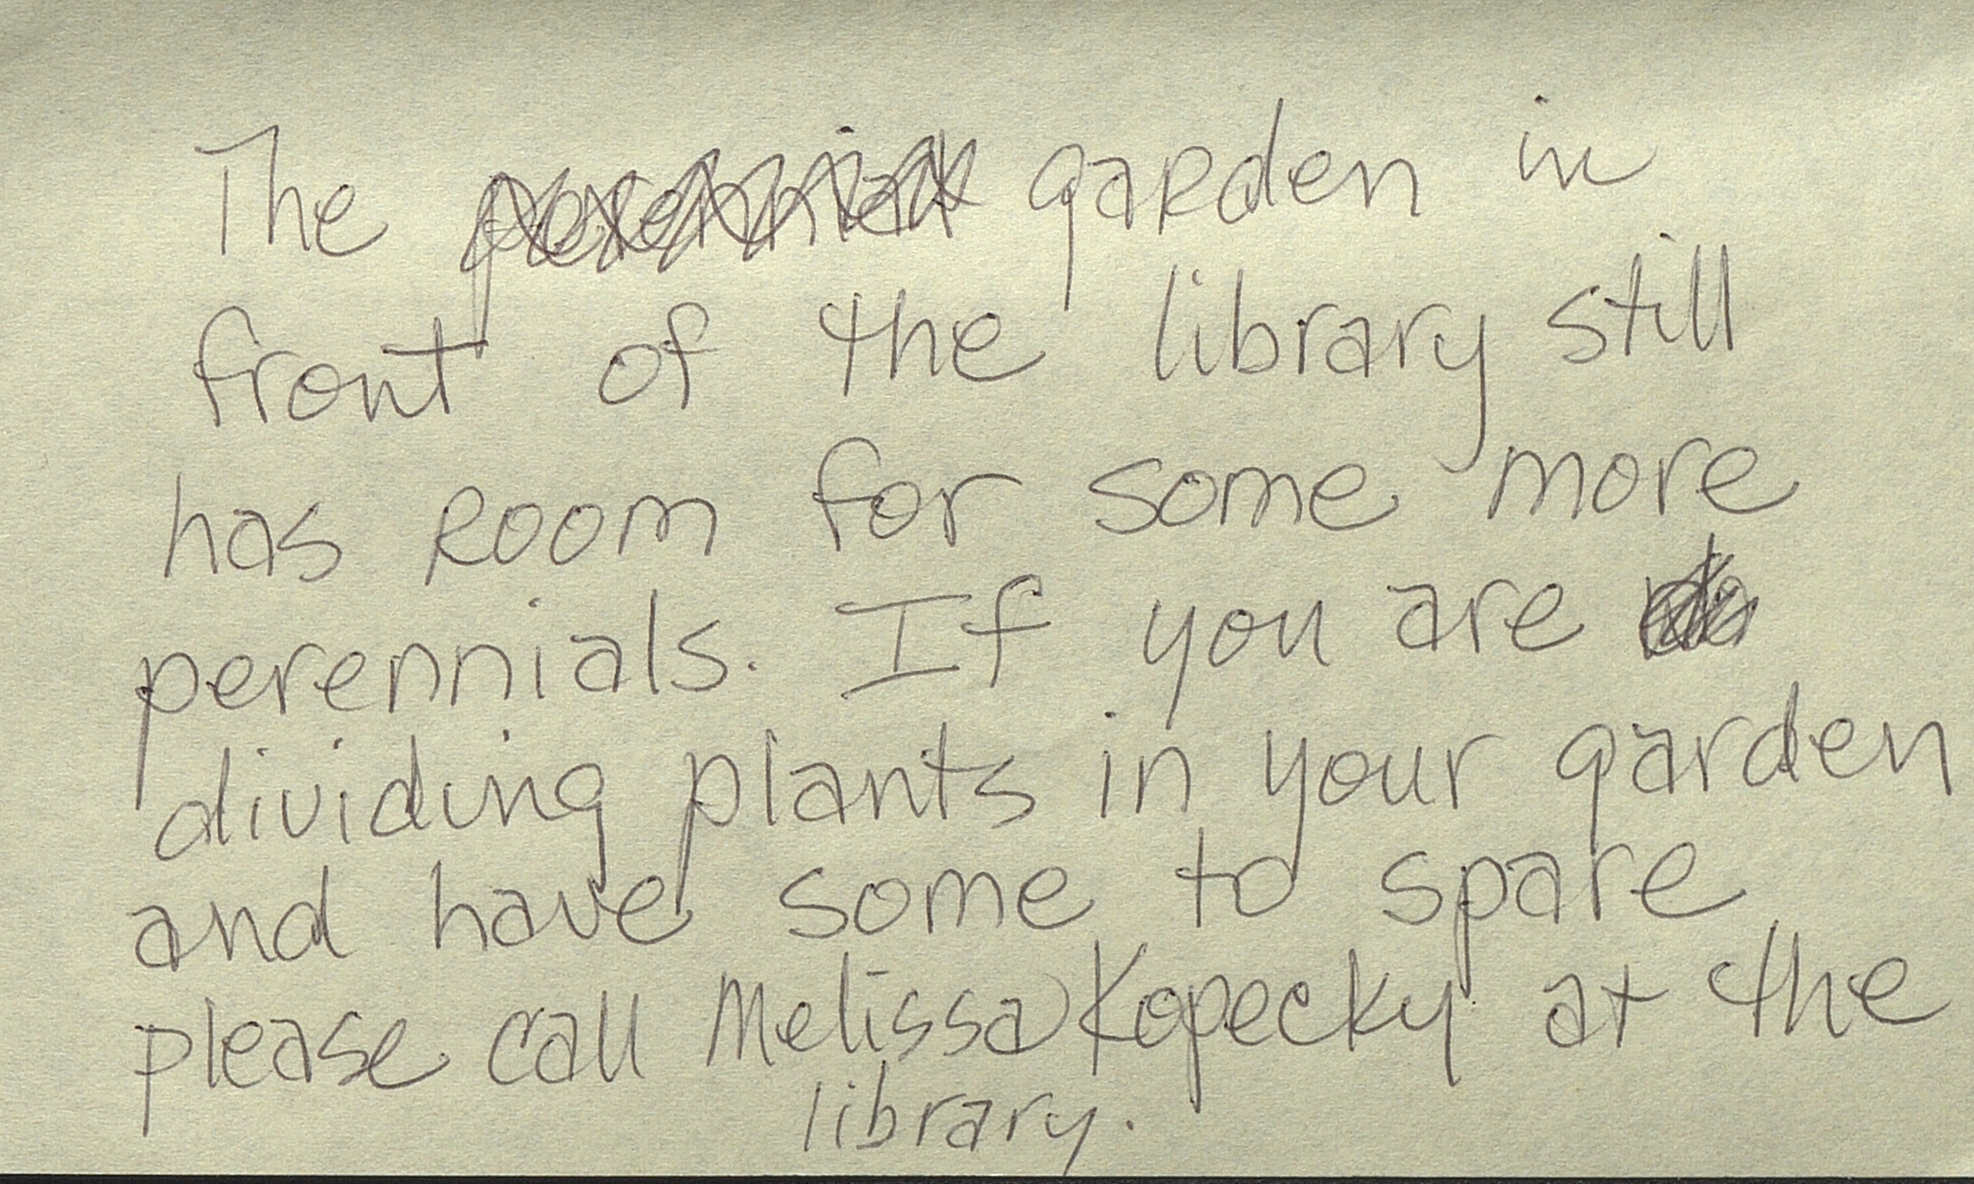 The perennial garden in
front of the library still
has Room for some more
perennials. If you are
dividing plants in your garden
and have some to spare
please call Melissa Kopecky at the
library.